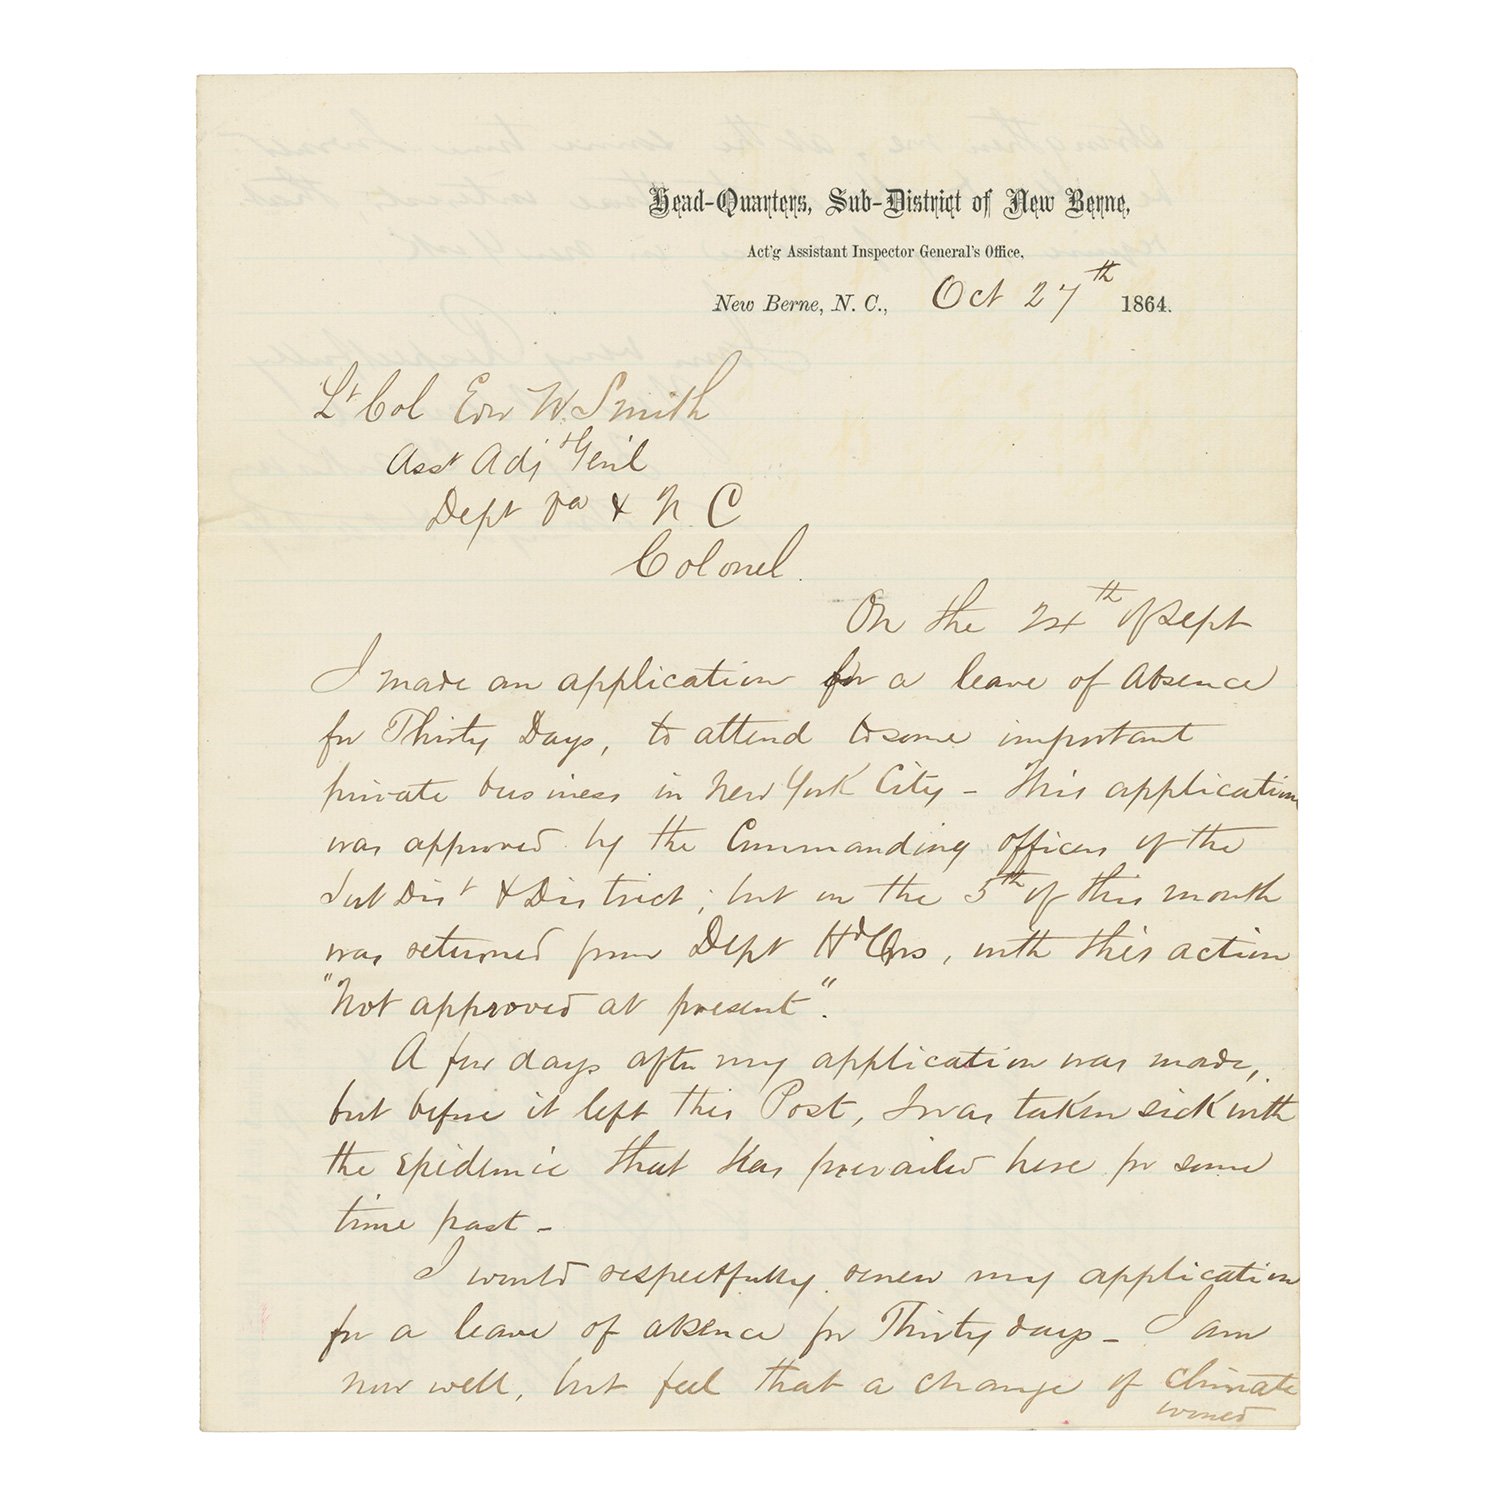 Head-Quarters, Sub-District of New Berne,
Act'g Assistant Inspector General's Office,
New Berne, N. C., Oct 27th 1864.
Lt Col Edw W. Smith
Asst Adj't Gen'l
Dept Va & N. C
Colonel.
On the 24th of Sept
I made an application for a leave of absence
for Thirty Days, to attend to some important
private business in New York City - This application
was approved by the Commanding officers of the
Sub Dist & District; but on the 5th of this month
was returned from Dept Hd Qrs, with this action
"Not approved at present".
A few days after my application was made,
but before it left this Post, I was taken sick with
the epidemic that has prevailed here for some
time past -
I would respectfully renew my application
for a leave of absence for Thirty days - I am
now well, but feel that a change of climate
would